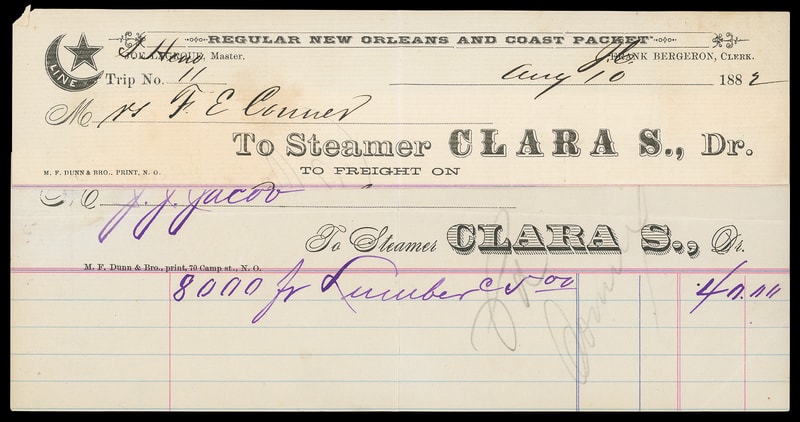 REGULAR NEW ORLEANS AND COAST PACKET
LINE
JOE LA, Master.
FRANK BERGERON, CLERK.
Trip No. 11
Aug 10 1882
Mrs F. E Conner
To Steamer CLARA S., Dr.
M. F. DUNN & BRO., PRINT, N. O.
TO FREIGHT ON
J. J. Jacob
To Steamer CLARA S., Dr.
M. F. Dunn & Bro., print, 70 Camp st., N. O.
8000 ft Lumber c 5 00 40.00